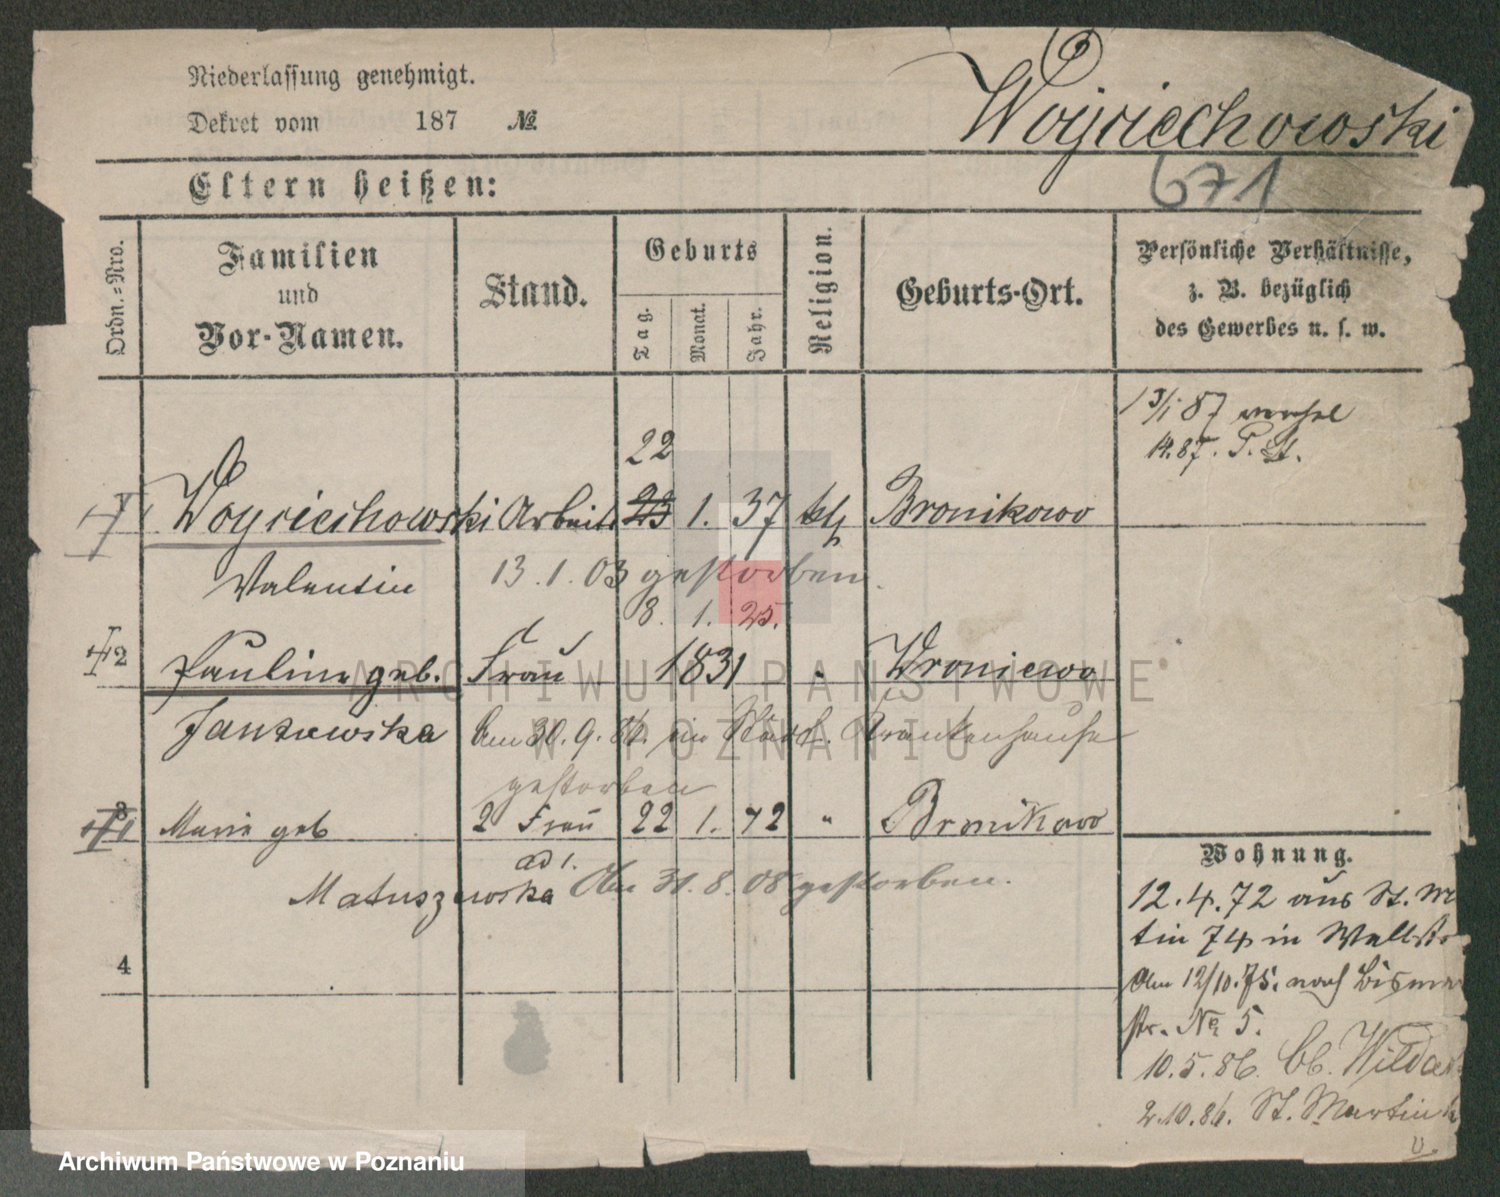 Niederlassung genehmigt.
Dekret vom 187 №
Woyciechowski
671
Eltern heißen:
Ordn.-Nro.
Familien und Vor-Namen.
Stand.
Geburts
Tag.
Monat.
Jahr.
Religion.
Geburts-Ort.
Persönliche Verhältnisse,
z. B. bezüglich
des Gewerbes u. s. w.
14.87. P. Bl.
22
1 Woyciechowski Arbeiter 23 1. 37 kth Bronikowo
Valentin 13.1.03 gestorben.
8. 1. 25.
2 Pauline geb. Frau 1831 " Wroniewo
Jantzewska Am 30.9.86. im Städt. Krankenhause
gestorben
3 Marie geb 2 Frau 22 1. 72 " Bronikowo
ad 1.
Matuszewska Am 31.8.08 gestorben.
4
Wohnung.
12.4.72 aus St. M
tin 74 in Wallstr
Am 12/10.75. nach Bismar
str. № 5.
10.5.86. Wilda
2.10.86. St. Martin
ARCHIWUM PAŃSTWOWE
W POZNANIU
Archiwum Państwowe w Poznaniu